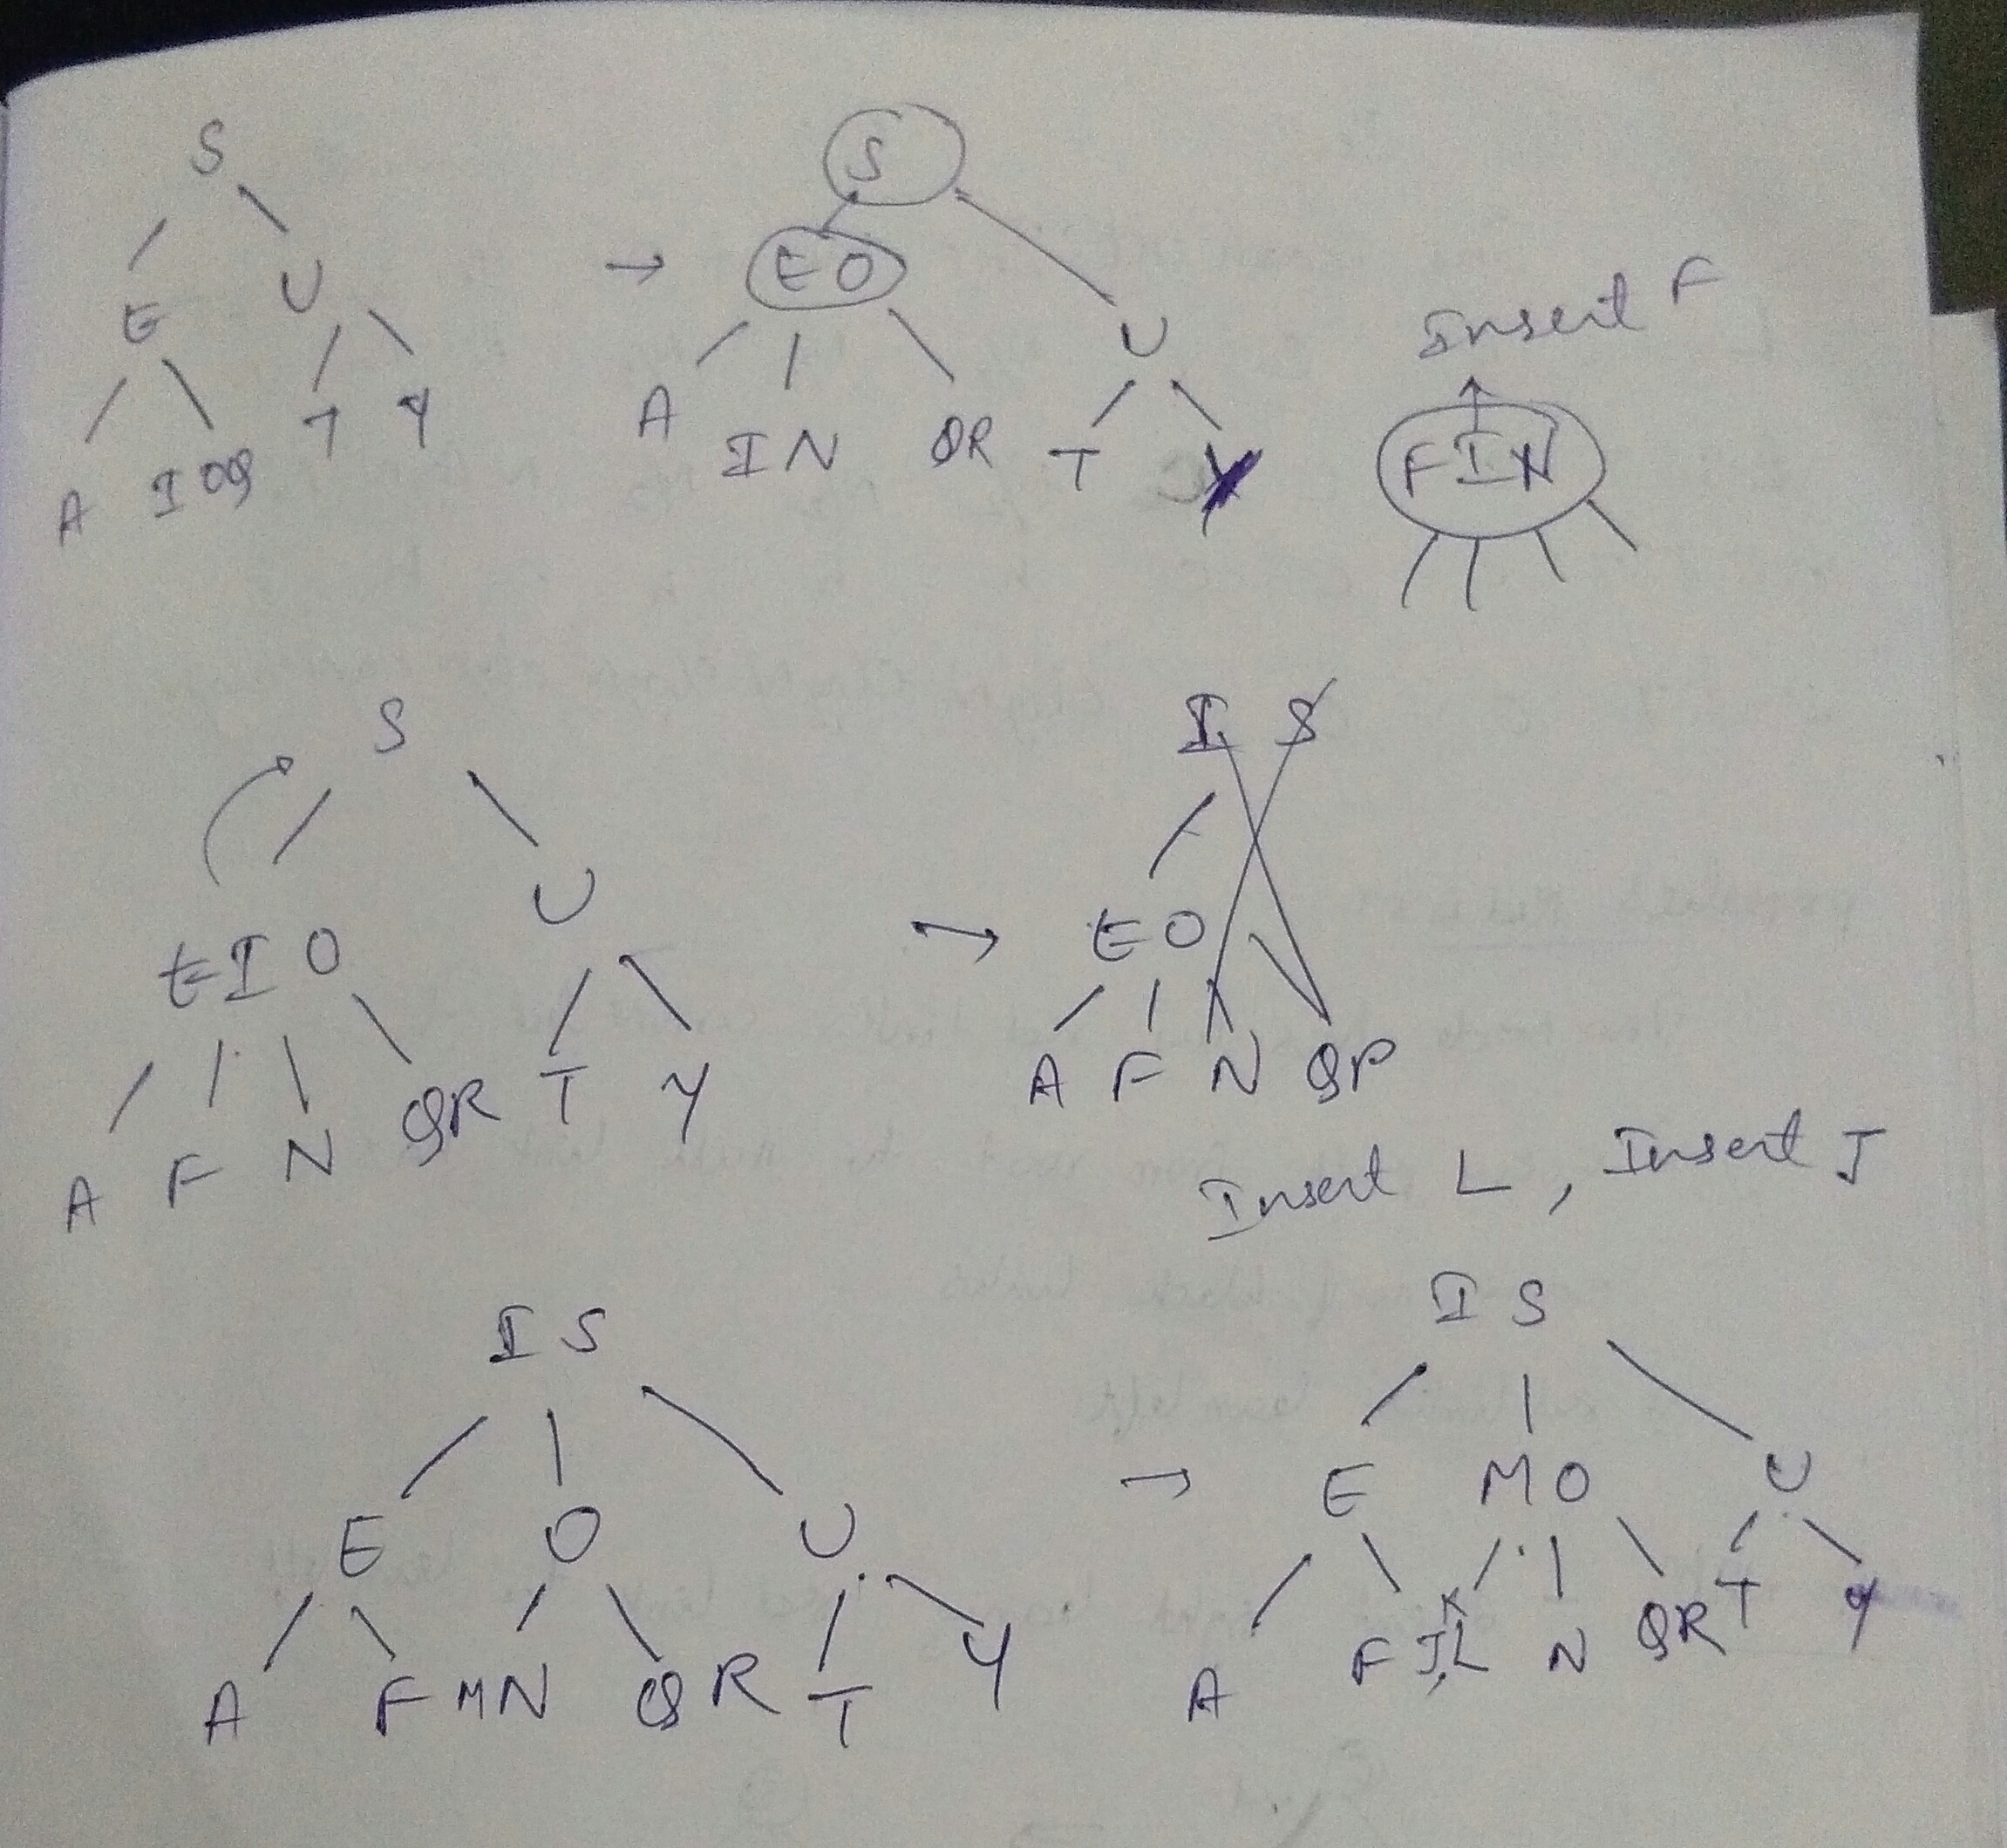 S
E U
A I OQ T Y
→
S
E O
U
A I N QR T
Insert F
F I N
S
E I O U
A F N QR T Y
→
I S
E O
A F N QP
Insert L , Insert J
I S
E O U
A F M N Q R T Y
→
I S
E M O U
K
A F J L N QR T Y